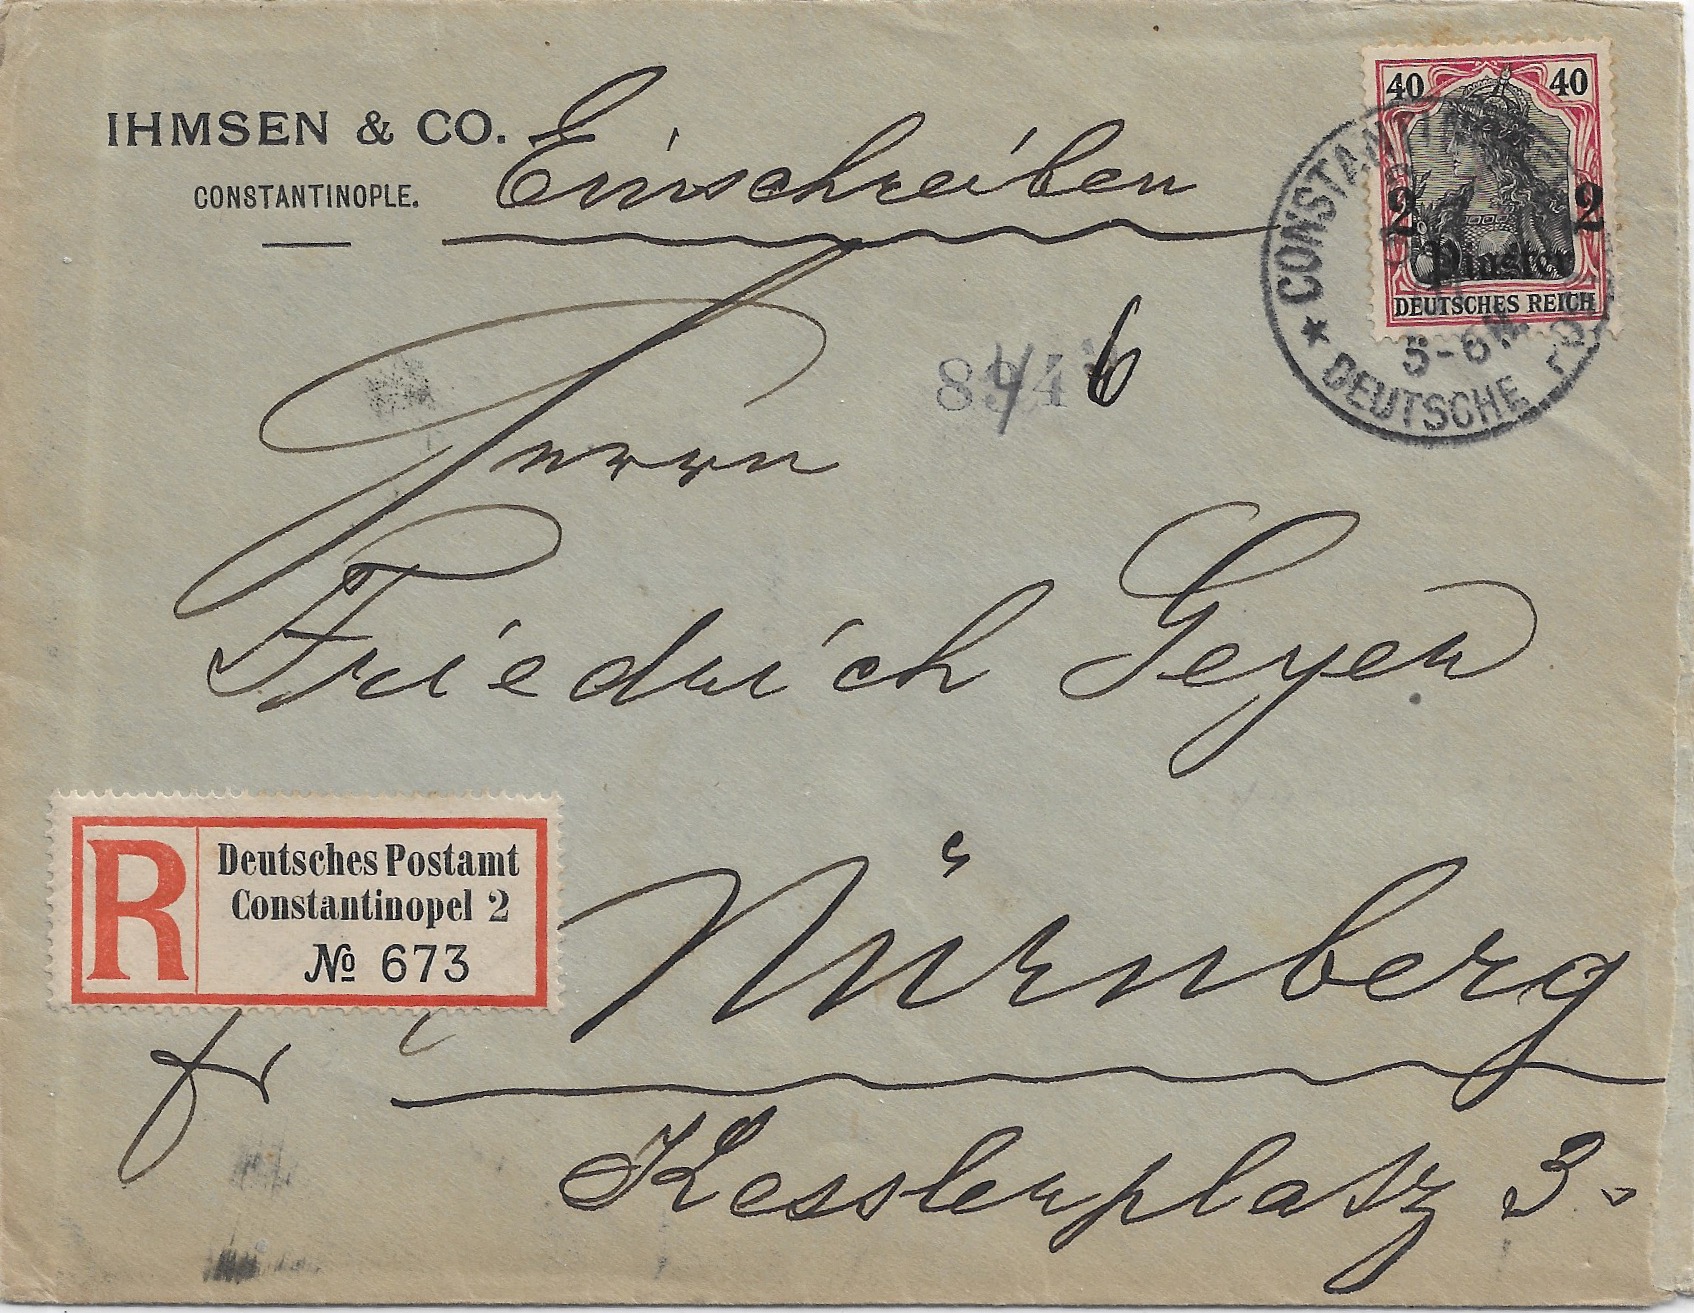 IHMSEN & CO.
CONSTANTINOPLE.
Einschreiben
40 40
2 2
Piaster
DEUTSCHES REICH
5-6
DEUTSCHE
6
Herrn
Friedrich Geyer
R
Deutsches Postamt
Constantinopel 2
№ 673
Nürnberg
fr
Kesslerplatz 3.